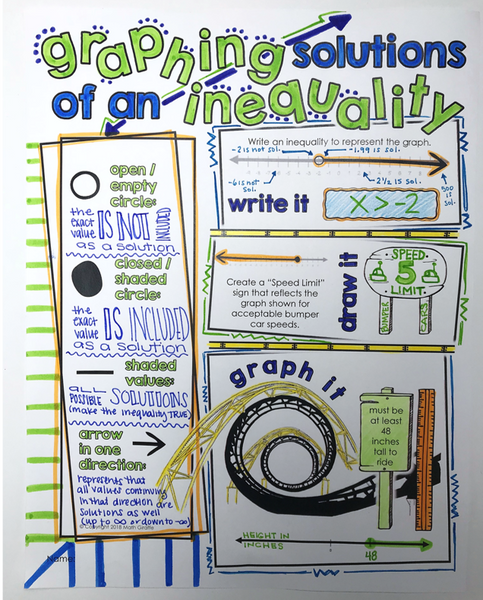 graphing solutions
of an inequality
open /
empty
circle:
the
exact
value
IS NOT
INCLUDED
as a solution
closed /
shaded
circle:
the
exact
value
IS INCLUDED
as a solution
shaded
values:
all
possible
SOLUTIONS
(make the inequality TRUE)
arrow
in one
direction:
represents that
all values continuing
in that direction are
solutions as well
(up to ∞ or down to -∞)
© Copyright 2018 Math Giraffe
Name:
Write an inequality to represent the graph.
-2 is not sol.
-1.99 is sol.
-6 is not
sol.
2½ is sol.
500
is
sol.
write it
x > -2
Create a “Speed Limit”
sign that reflects the
graph shown for
acceptable bumper
car speeds.
draw it
SPEED
5
LIMIT
BUMPER
CARS
graph it
must be
at least
48
inches
tall to
ride
HEIGHT IN
INCHES
48